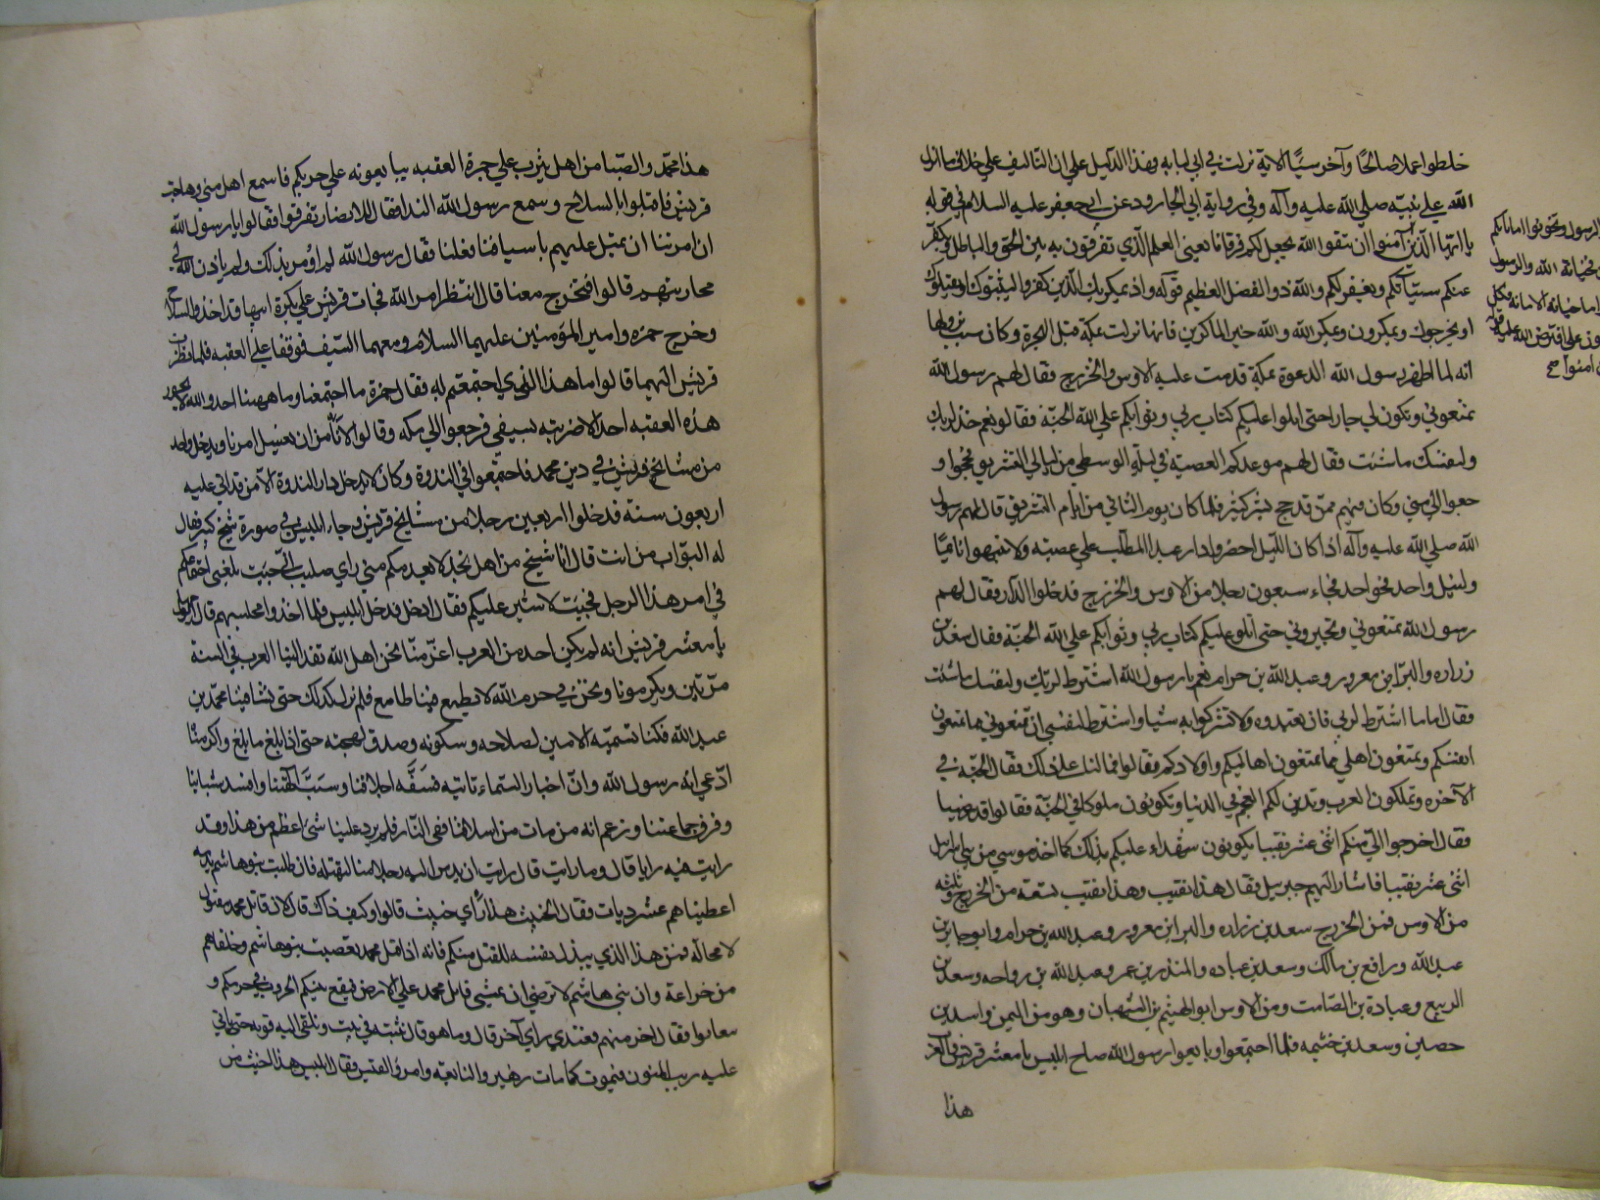 خلطوا عملا صالحًا وآخر سيًّا الاية نزلت في ابي لبابه فهذا الدليل علي ان التاليف علي خلاف ما انزل
الله علي نبيّه صلي الله عليه وآله وفي رواية ابي الجارود عن ابي جعفر عليه السلام في قوله
يا ايّها الّذين آمنوا ان تتقوا الله يجعل لكم فرقانا يعني العلم الّذي تفرقون به بين الحق والباطل ويكفّر
عنكم سيّآتكم ويغفر لكم والله ذو الفضل العظيم قوله واذ يمكر بك الّذين كفروا ليثبتوك او يقتلوك
او يخرجوك ويمكرون ويمكر الله والله خير الماكرين فانها نزلت بمكة قبل الهجرة وكان سبب نزولها
انه لما اظهر رسول الله الدعوة بمكة قدمت عليه الاوس والخزرج فقال لهم رسول الله
تمنعوني وتكون لي جارا حتى اتلوا عليكم كتاب ربي وثوابكم علي الله الجنّة فقالوا نعم خذ لربك
ولنفسك ما شئت فقال لهم موعدكم العصبة في ليلة الوسطي من ليالي التشريق فحجوا و
جعوا الي مني وكان فيهم ممّن قد حج بشر كثير فلما كان يوم الثاني من ايام التشريق قال لهم رسول
الله صلي الله عليه وآله اذا كان الليل احضروا دار عبد المطّلب علي عصبة ولا تنبهوا نائميًا
وليسل واحد فواحد فجاء سبعون رجلا من الاوس والخزرج فدخلوا الدار فقال لهم
رسول الله تمنعوني وتجيروني حتى اتلو عليكم كتاب ربي وثوابكم علي الله الجنّة فقال سعد بن
زراره والبرا بن معرور وعبد الله بن حرام نعم يا رسول الله اشترط لربك ولنفسك ما شئت
فقال اما ما اشترط لربي فان تعبدوه ولا تشركوا به شيا واشترط لنفسي ان تمنعوني مما تمنعون
انفسكم وتمنعون اهلي مما تمنعون اهاليكم واولادكم فقالوا فما لنا علي ذلك فقال الجنّة في
الآخره وتملكون العرب وتدين لكم العجم في الدنيا وتكونون ملوكا في الجنّة فقالوا قد رضينا
فقال اخرجوا اليّ منكم اثني عشر نقيبا يكونون شهداء عليكم بذلك كما اخذ موسي من بني اسرائيل
اثني عشر نقيبا فاشار اليهم جبرئيل فقال هذا نقيب وهذا نقيب تسعة من الخزرج وثلثه
من الاوس فمن الخزرج سعد بن زراره والبرا بن معرور وعبد الله بن حرام وابو جابر بن
عبد الله ورافع بن مالك وسعد بن عباده والمنذر بن عمر وعبد الله بن رواحه وسعد بن
الربيع وعبادة بن الصامت ومن الاوس ابو الهيثم بن التيهان وهو من اليمن واسد بن
حصين وسعد بن خثيمه فلما اجتمعوا وبايعوا رسول الله صاح ابليس يا معشر قريش والعرب
هذا
الرسول وتخونوا اماناتكم
فخيانة الله والرسول
واما خيانة الامانة فكل
علي ما افترض الله عليه
امنوا صح
هذا محمّد والصّبا من اهل يثرب علي جمرة العقبه يبايعونه علي حربكم فاسمع اهل مني وهاجت
قريش فاقبلوا بالسلاح وسمع رسول الله الندا فقال للانصار تفرقوا فقالوا يا رسول الله
ان امرتنا ان نميل عليهم باسيافنا فعلنا فقال رسول الله لم اؤمر بذلك ولم ياذن الله لي في
محاربتهم قالوا فتخرج معنا قال انتظر امر الله فجات قريش علي بكرة ابيها قد اخذوا السلاح
وخرج حمزه وامير المؤمنين عليهما السلام ومعهما السّيف فوقفا علي العقبه فلما نظرت
قريش اليهما قالوا ما هذا الذي اجتمعتم له فقال حمزة ما اجتمعنا وما ههنا احد والله لا يجوز
هذه العقبه احد الا ضربته بسيفي فرجعوا الي مكه وقالوا لا نأمن ان يفسد امرنا ويدخل واحد
من مشايخ قريش في دين محمد فاجتمعوا في الندوة وكان لا يدخل دار الندوة الا من قد اتي عليه
اربعون سنة فدخلوا اربعين رجلا من مشايخ قريش وجاء ابليس في صورة شيخ كبير فقال
له البوّاب من انت قال انا شيخ من اهل نجد لا يعدمكم مني راي صايب اني حيث بلغني اجتماعكم
في امر هذا الرجل فجيت لاشير عليكم فقال ادخل فدخل ابليس فلما اخذوا مجلسهم قال ابو جهل
يا معشر قريش انه لم يكن احد من العرب اعزّ منّا نحن اهل الله تفد الينا العرب في السنة
مرّتين ويكرمونا ونحن في حرم الله لا يطمع فينا طامع فلم نزل كذلك حتى نشا فينا محمد بن
عبد الله فكنا نسميّه الامين لصلاحه وسكونه وصدق لهجته حتى اذا بلغ ما بلغ واكرمنا
ادّعي انه رسول الله وانّ اخبار السماء تاتيه فسَفَّه احلامنا وسَبَّ آلهتنا وافسد شبابنا
وفرق جماعتنا وزعم انه من مات من اسلافنا ففي النّار فلم يرد علينا شئ اعظم من هذا وقد
رايت فيه رايا قال وما رايت قال رايت ان يدس اليه رجلا منا ليقتله فان طلبت بنو هاشم بديته
اعطيناهم عشر ديات فقال الخبيث هذا رأي خبيث قالوا وكيف ذاك قال لان قاتل محمد مقتول
لا محالة فمن هذا الذي يبذل نفسه للقتل منكم فانه اذا قتل محمد تعصبت بنو هاشم وحلفاهم
من خزاعة وان بني هاشم لا ترضي ان يمشي قاتل محمد علي الارض فيقع بينكم الحروب في حرمكم و
تفانوا فقال اخر منهم فعندي راي آخر قال وما هو قال نثبته في بيت ونلقي اليه قوته حتى ياتي
عليه ريب المنون فيموت كما مات زهير والنابغه وامرؤ القيس فقال ابليس هذا اخبث من